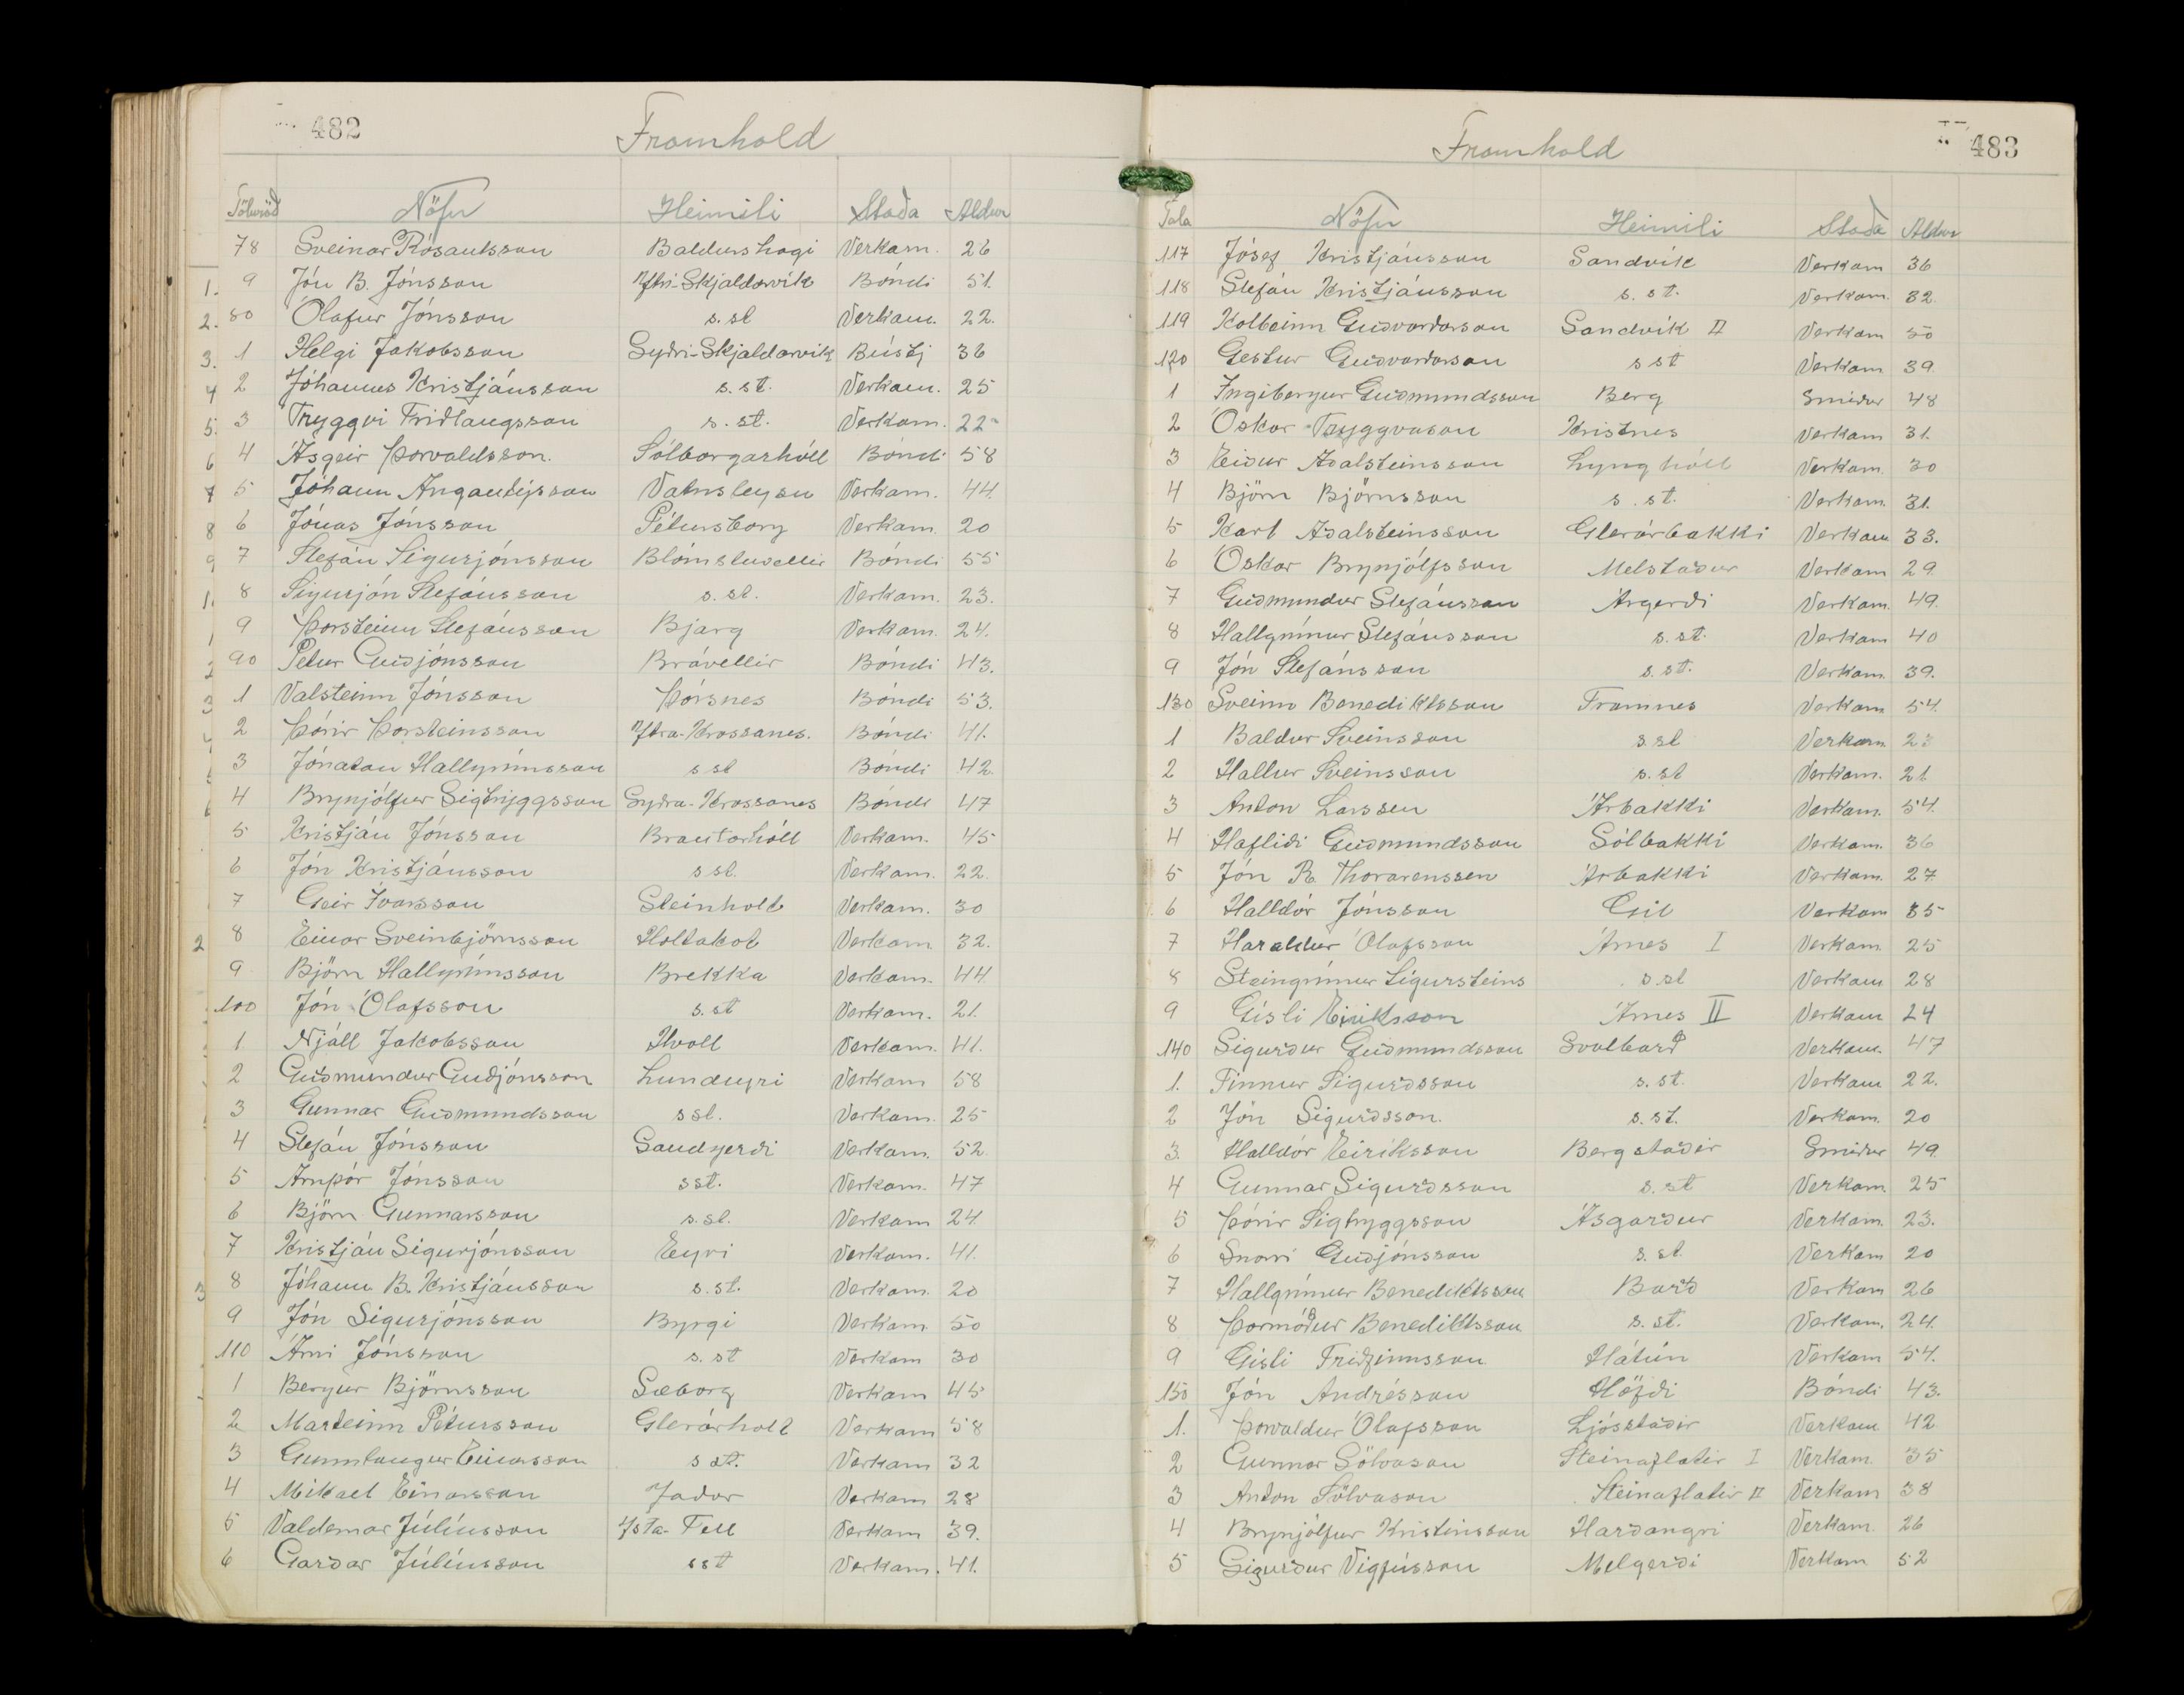 482
Framhald
Töluröð Nöfn Heimili Staða Aldur
78 Sveinar Rósantsson Baldurshagi Verkam. 26
9 Jón B. Jónsson Ytri-Skjaldarvík Bóndi 51.
80 Ólafur Jónsson s.st Verkam. 22.
1 Helgi Jakobsson Syðri-Skjaldarvík Bústj 36
2 Jóhannes Kristjánsson s.st. Verkam. 25
3 Tryggvi Friðlaugsson s.st. Verkam. 22
4 Ásgeir Þorvaldsson. Sólborgarhóll Bóndi 58
5 Jóhann Angantýsson Vatnsleysu Verkam. 44.
6 Jónas Jónsson Pétursborg Verkam. 20
7 Stefán Sigurjónsson Blómsturvellir Bóndi 55
8 Sigurjón Stefánsson s.st. Verkam. 23.
9 Þorsteinn Stefánsson Bjarg Verkam. 24.
90 Petur Guðjónsson Brávellir Bóndi 43.
1 Valsteinn Jónsson Þórsnes Bóndi 53.
2 Þórir Þorsteinsson Ytra-Krossanes. Bóndi 41.
3 Jónatan Hallgrímsson s st Bóndi 42.
4 Brynjólfur Sigtryggsson Syðra-Krossanes Bóndi 47
5 Kristján Jónsson Brautarhóll Verkam. 45
6 Jón Kristjánsson s st. Verkam. 22.
7 Geir Ívarsson Steinholt Verkam. 30
8 Einar Sveinbjörnsson Holtakot Verkam. 32.
9 Björn Hallgrímsson Brekka Verkam. 44
100 Jón Ólafsson s.st Verkam. 21.
1 Njáll Jakobsson Hvoll Verkam. 41.
2 Guðmundur Guðjónsson Lundeyri Verkam 58
3 Gunnar Guðmundsson s st. Verkam. 25
4 Stefán Jónsson Sandgerði Verkam. 52
5 Arnþór Jónsson s st. Verkam. 47
6 Björn Gunnarsson s.st. Verkam 24.
7 Kristján Sigurjónsson Eyri Verkam. 41.
8 Jóhann B. Kristjánsson s.st. Verkam. 20
9 Jón Sigurjónsson Byrgi Verkam 50
110 Árni Jónsson s. st Verkam 30
1 Bergur Björnsson Sæborg Verkam 45
2 Marteinn Pétursson Glerárholt Verkam 58
3 Gunnlaugur Einarsson s st. Verkam 32
4 Mikael Einarsson Jaðar Verkam 28
5 Valdemar Júlíusson Ysta-Fell Verkam 39.
6 Garðar Júlíusson s st Verkam. 41.
483
Framhald
Tala Nöfn Heimili Staða Aldur
117 Jósef Kristjánsson Sandvík Verkam 36
118 Stefán Kristjánsson s. st. Verkam. 32.
119 Kolbeinn Guðvarðarson Sandvík II Verkam 30
120 Gestur Guðvarðarson s st Verkam 39.
1 Ingibergur Guðmundsson Berg Smiður 48
2 Óskar Tryggvason Kristnes Verkam 31.
3 Eiður Aðalsteinsson Lynghóll Verkam. 30
4 Björn Björnsson s. st. Verkam. 31.
5 Karl Aðalsteinsson Glerárbakki Verkam 33.
6 Óskar Brynjólfsson Melstaður Verkam 29.
7 Guðmundur Stefánsson Árgerði Verkam. 49.
8 Hallgrímur Stefánsson s. st. Verkam 40
9 Jón Stefánsson s. st. Verkam. 39.
130 Sveinn Benediktsson Framnes Verkam 54.
1 Baldur Sveinsson s.st Verkam.
2 Hallur Sveinsson s.st Verkam. 21
3 Anton Larssen Árbakki Verkam. 54.
4 Hafliði Guðmundsson Sólbakki Verkam. 36
5 Jón R. Thorarenssen Árbakki Verkam. 27
6 Halldór Jónsson Gil Verkam 35
7 Haraldur Ólafsson Árnes I Verkam. 25
8 Steingrímur Sigursteins s.st Verkam 28
9 Gísli Eiríksson Árnes II Verkam 24
140 Sigurður Guðmundsson Svalbarð Verkam. 47
1. Finnur Sigurðsson s. st. Verkam 22.
2 Jón Sigurðsson. s. st. Verkam. 20
3. Halldór Eiríksson Bergstaðir Smiður 49.
4 Gunnar Sigurðsson s. st Verkam. 25
5 Þórir Sigtryggsson Ásgarður Verkam. 23.
6 Snorri Guðjónsson s. st. Verkam 20
7 Hallgrímur Benediktsson Barð Verkam 26
8 Þormóður Benediktsson s. st. Verkam. 24.
9 Gísli Friðfinnsson Hátún Verkam 54.
150 Jón Andrésson Höfði Bóndi 43.
1. Þorvaldur Ólafsson Ljósstaðir Verkam 42
2 Gunnar Sölvason Steinaflatir I Verkam. 35
3 Anton Sölvason Steinaflatir II Verkam 38
4 Brynjólfur Kristinsson Harðangri Verkam. 26
5 Sigurður Vigfússon Melgerði Verkam 52